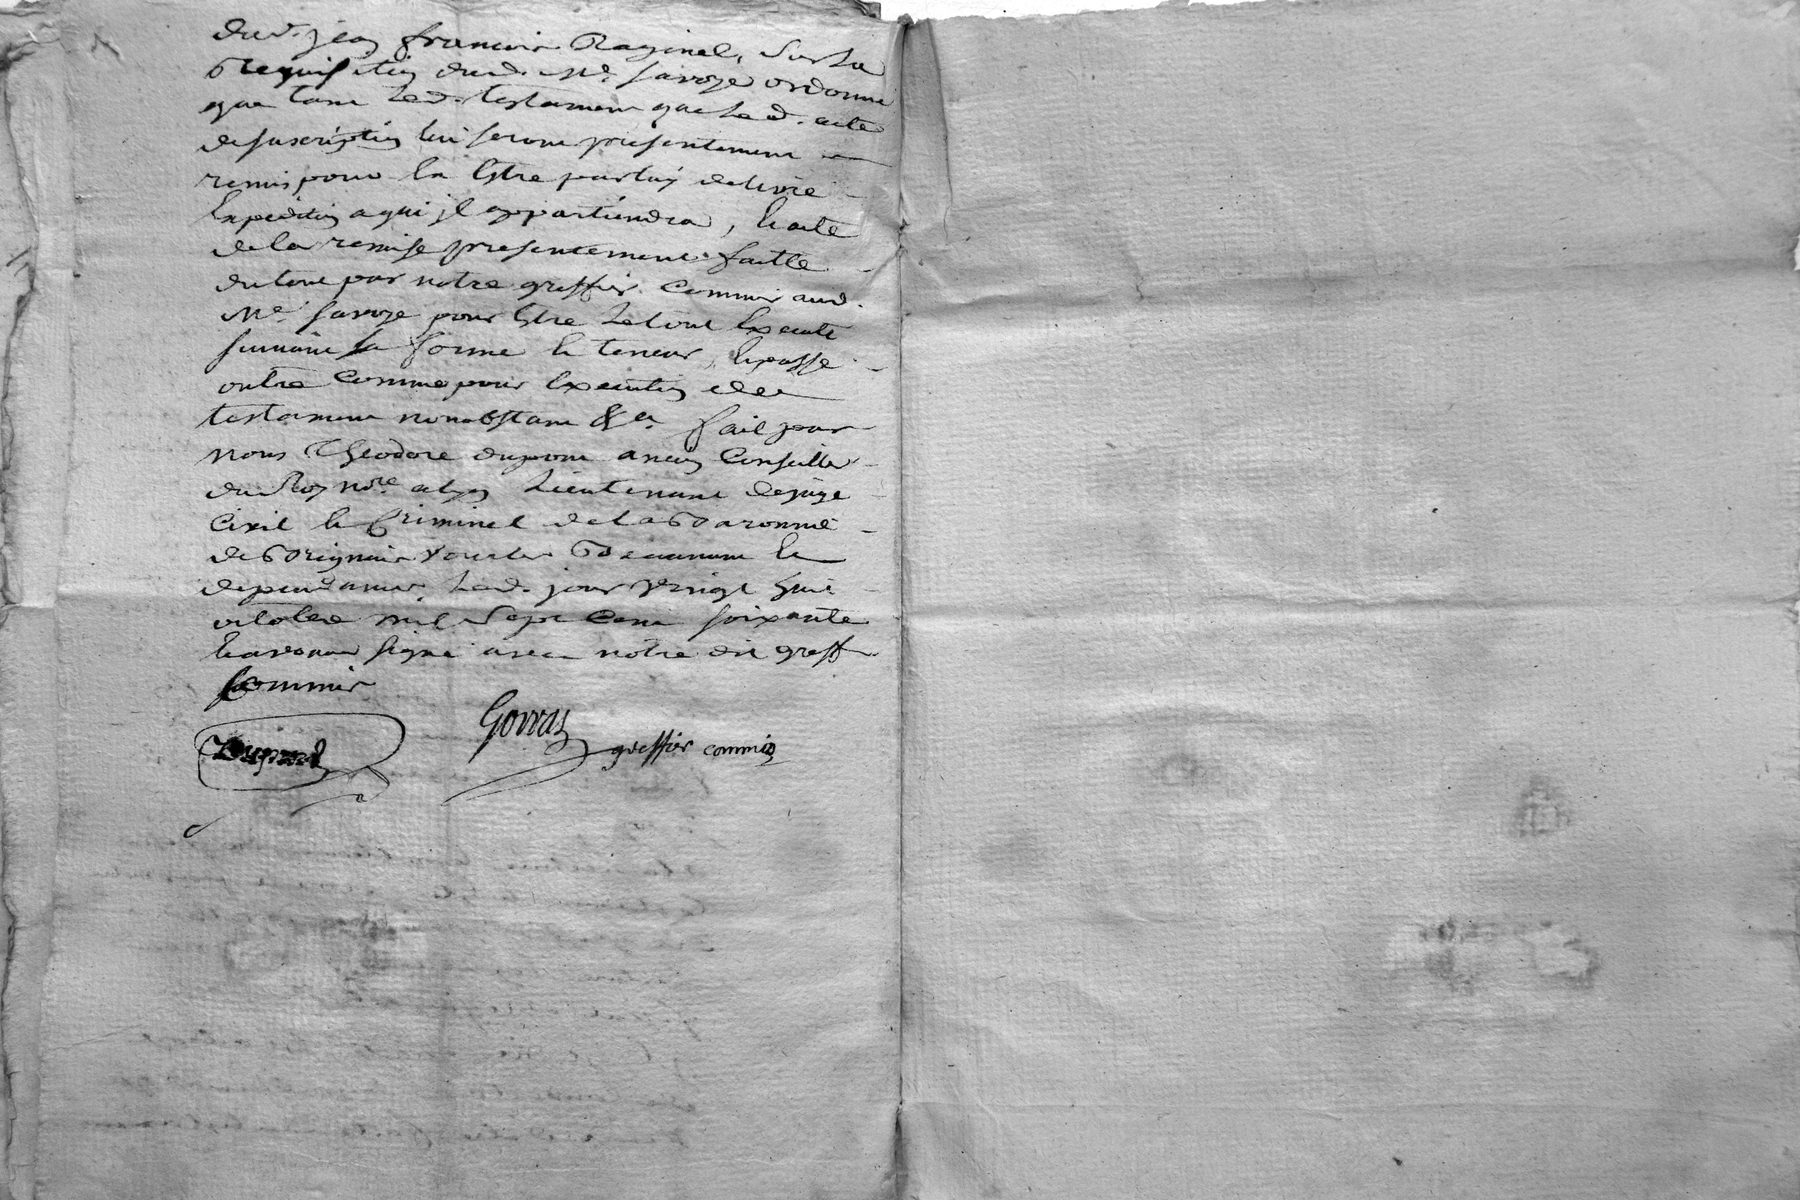 dud. jean francois Raginel, Sur la
requisition dud. Me. Savoye ordonne
que tant led. testament que led. acte
de suscription lui seront presentement
remis pour En Estre par luy delivré
Expedition a qui jl appartiendra, Et acte
de la remise presentement faitte
du tout par notre greffier Commis aud.
Me. Savoye pour Estre le tout Executé
suivant sa forme Et teneur, Et passé
outre Comme pour Execution de
testament nonobstant &a. fait par
Nous Théodore dupont ancien Conseiller
du Roy Nore. a Lyon Lieutenant de juge
Civil Et Criminel de la Baronnie
de Et
dependances, led. jour vingt huit
octobre mil Sept Cent soixante
Et avons signé avec notre dit greff.
Commis
Dupont
Gorras greffier commis